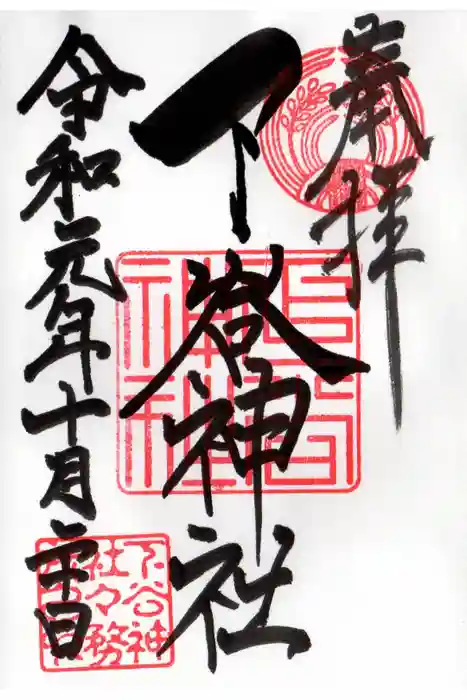 奉拝
下谷神社
令和元年十月二十日
下谷神
社々務